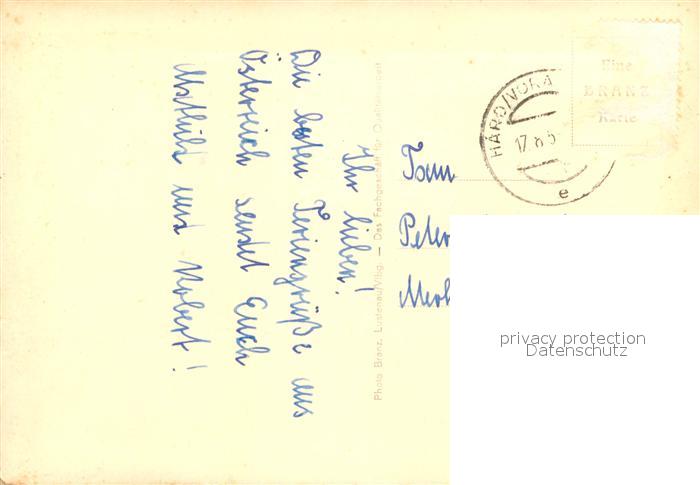 Ihr lieben!
Die besten Feriengrüße aus
Österreich sendet Euch
Mathild und Robert!
Photo Branz, Lustenau/Vlbg. — Das Fachgeschäft für Qualitätsarbeit
Fam
Peter
HARD/VORA
17.8.5
e
Eine
BRANZ
Karte
privacy protection
Datenschutz